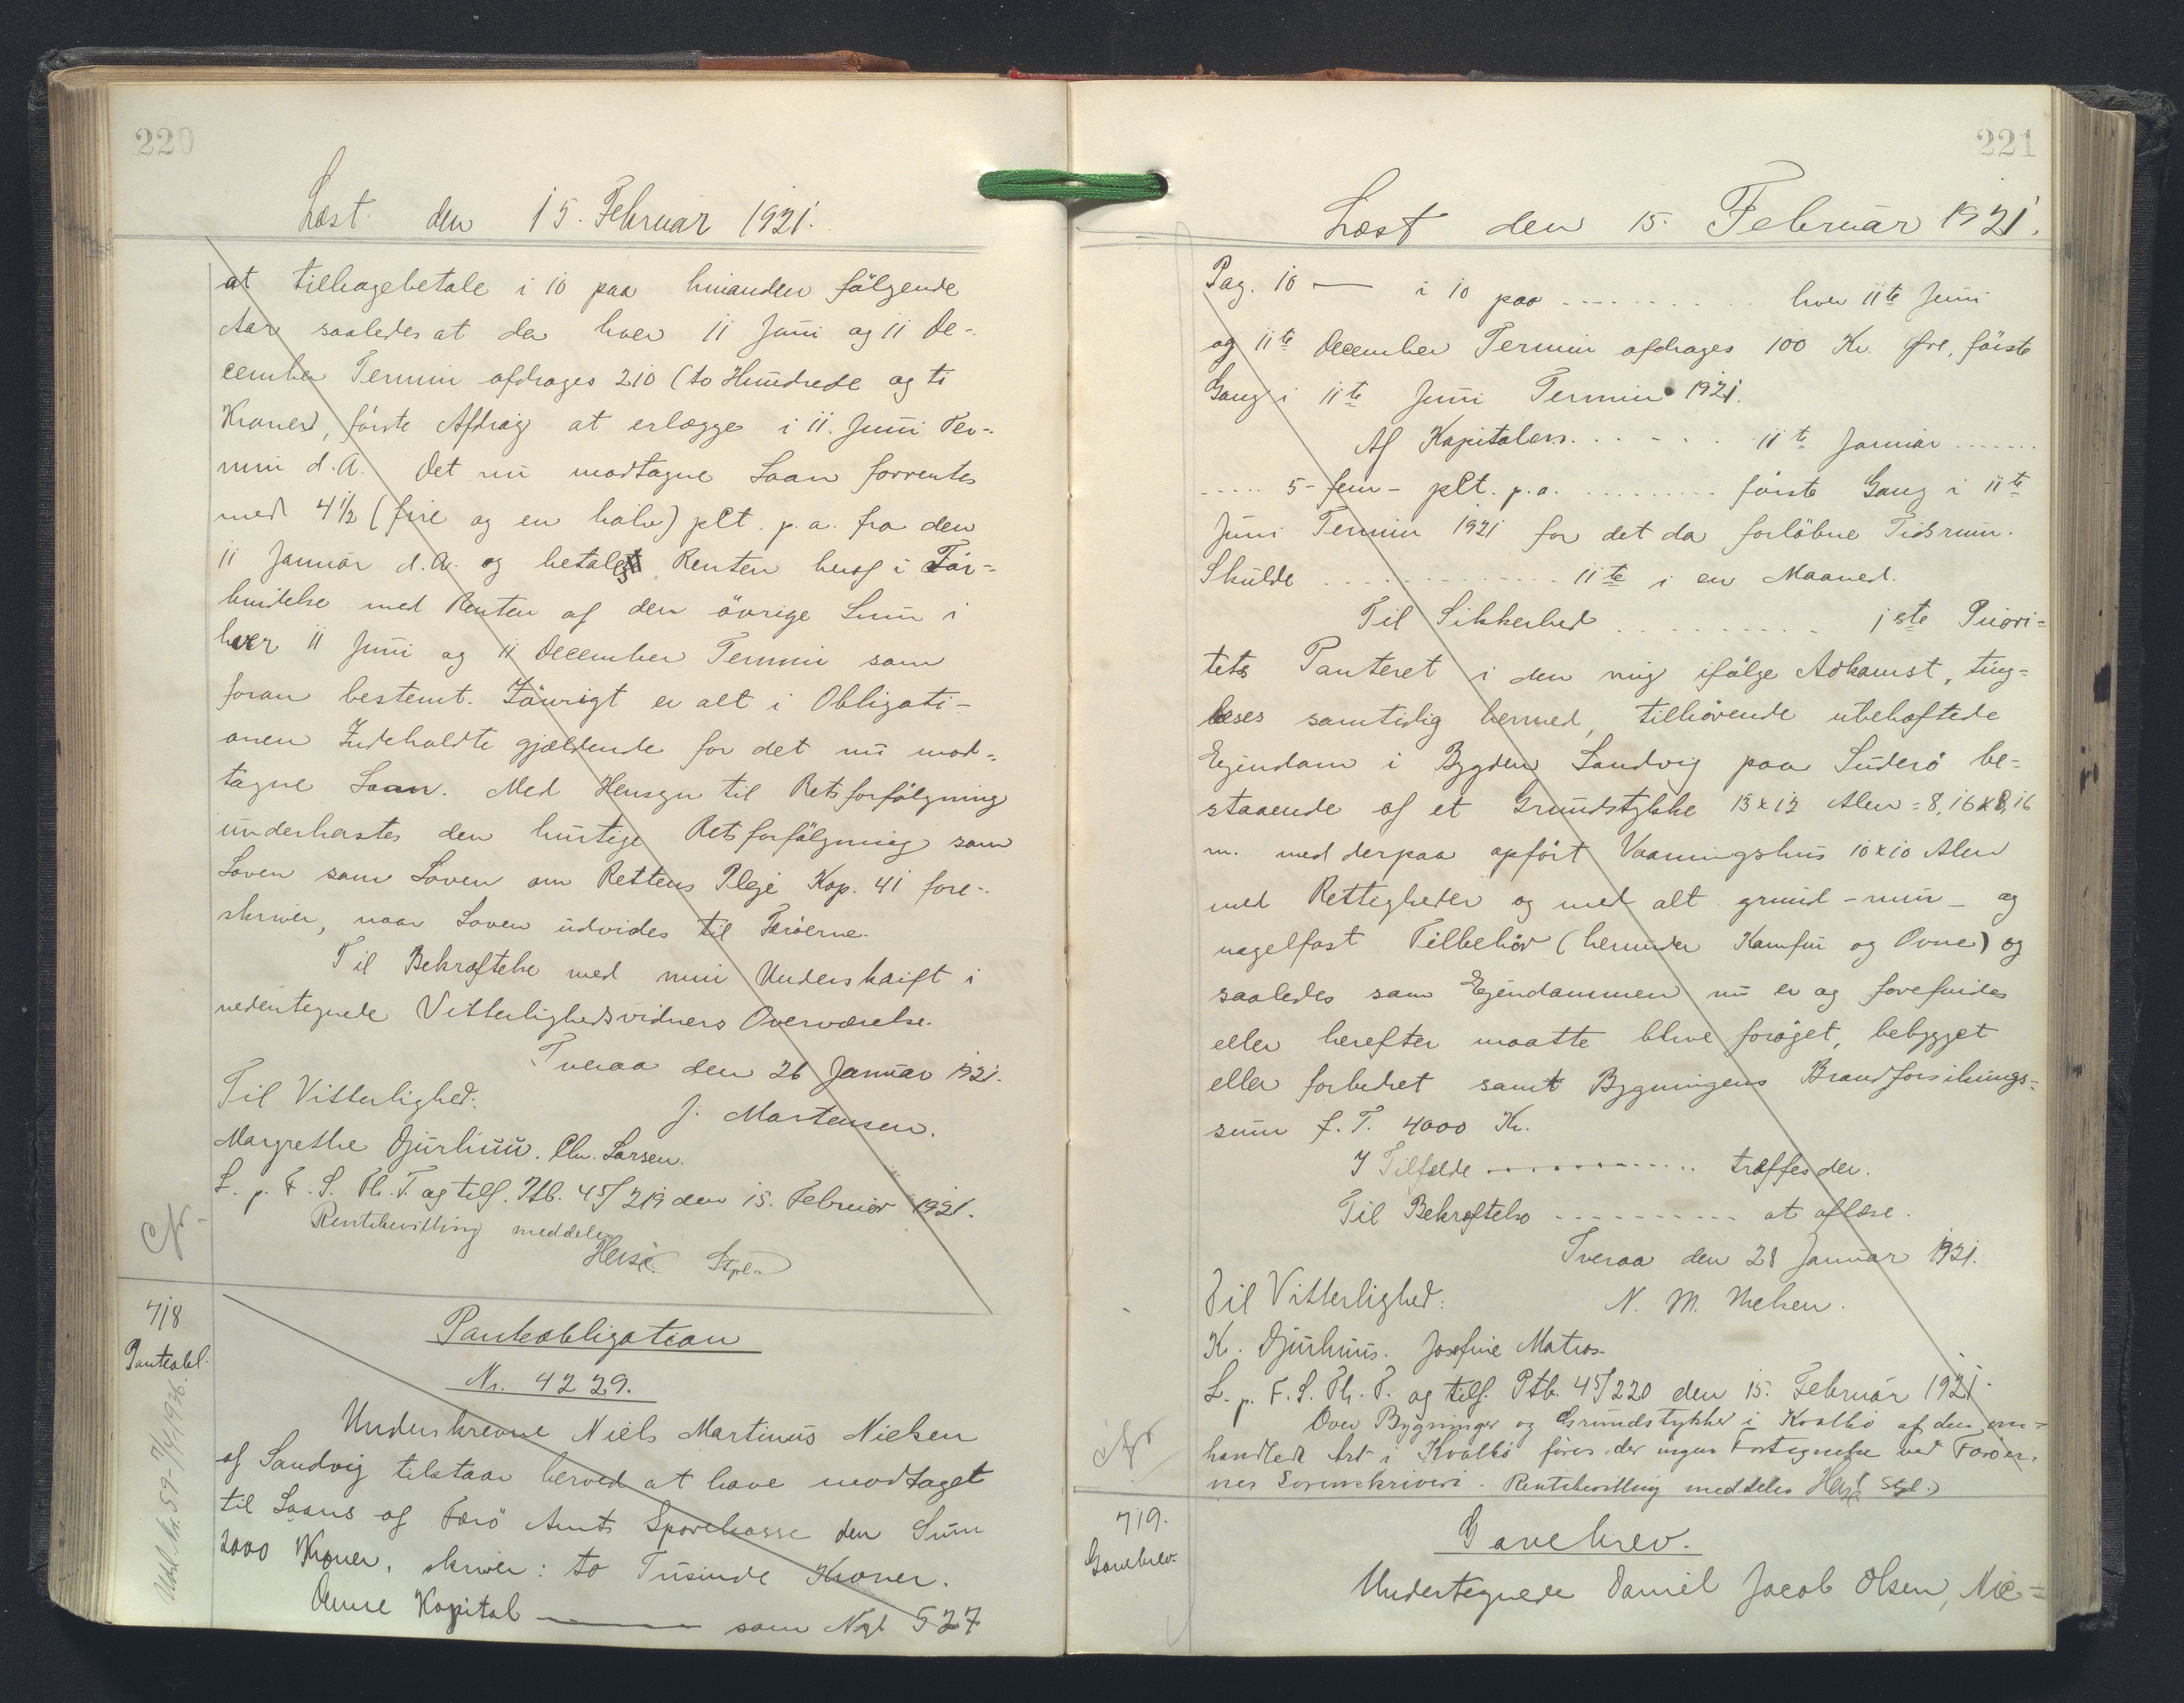 220
Læst den 15. Februar 1921.
at tilbagebetale i 10 paa hinanden følgende
Aar saaledes at der hver 11 Juni og 11 De-
cember Termin afdrages 210 (to Hundrede og ti
Kroner), første Afdrag at erlægge i 11. Juni Ter-
min d.A. Det nu modtagne Laan forrentes
med 4 1/2 (fire og en halv) pCt. p. a. fra den
11 Januar d.A. og betales Renten heraf i For-
bindelse med Renten af den øvrige Sum i
hver 11 Juni og 11 December Termin som
foran bestemt. Iøvrigt er alt i Obligati-
onen Indeholdte gjældende for det nu mod-
tagne Laan. Med Hensyn til Retsforfølgning
underkastes den hurtige Retsforfølgning som
Loven som Loven om Rettens Pleje Kap. 41 fore-
skriver, naar Loven udvides til Færøerne.
Til Bekræftelse med min Underskrift i
nedentegnede Vitterlighedsvidners Overværelse.
Tveraa den 26 Januar 1921.
Til Vitterlighed: J. Mortensen.
Margrethe Djurhuus. Chr. Larsen.
L. p. F. S. Th. T. og tilf. Ptb. 45/219 den 15. Februar 1921.
Rentebevilling meddeles
Cfr.
718
Panteobl.
Pantobligation
Nr. 4229.
Underskrevne Niels Martinus Nielsen
af Sandvig tilstaar herved at have modtaget
til Laans af Færø Amts Sparekasse den Sum
2000 Kroner, skriver: to Tusinde Kroner.
Denne Kapital — som Nr. 527
Udsl. Nr. 59 - 7/4 1936.
221
Læst den 15. Februar 1921.
Pag. 10 — i 10 paa .......... hver 11te Juni
og 11te December Termin afdrages 100 Kr. Øre, første
Gang i 11te Juni Termin 1921.
Af Kapitalen. ..... 11te Januar ......
..... 5 - fem - pCt. p. a. ......... første Gang i 11te
Juni Termin 1921 for det da forløbne Tidsrum.
Skulde ............ 11te i en Maaned.
Til Sikkerhed .......... 1ste Priori-
tets Panteret i den mig ifølge Adkomst, ting-
læses samtidig hermed, tilhørende ubehæftede
Ejendom i Bygden Sandvig paa Suderø be-
staaende af et Grundstykke 13 x 13 Alen = 8,16 x 8,16
m. med derpaa opført Vaaningshus 10 x 10 Alen
med Rettigheder og med alt grund - mur - og
nagelfast Tilbehør (herunder Komfur og Ovne) og
saaledes som Ejendommen nu er og forefindes
eller herefter maatte blive forøget, bebygget
eller forbedret samt Bygningens Brandforsikrings-
sum f. T. 4000 Kr.
I Tilfælde ............ træffes der.
Til Bekræftelse .......... at aflæse.
Tveraa den 28 Januar 1921.
Til Vitterlighed: N. M. Nielsen.
K. Djurhuus. Josefine Matras.
L. p. F. S. Th. T. og tilf. Ptb. 45/220 den 15. Februar 1921.
Over Bygninger og Grundstykker i Kvalbø af den om-
handlede Art i Kvalbø føres der ingen Fortegnelse ved Færøer-
nes Sorenskriveri. Rentebevilling meddeles
Cfr
719.
Gavebrev.
Gavebrev.
Undertegnede Daniel Jacob Olsen, Nic-